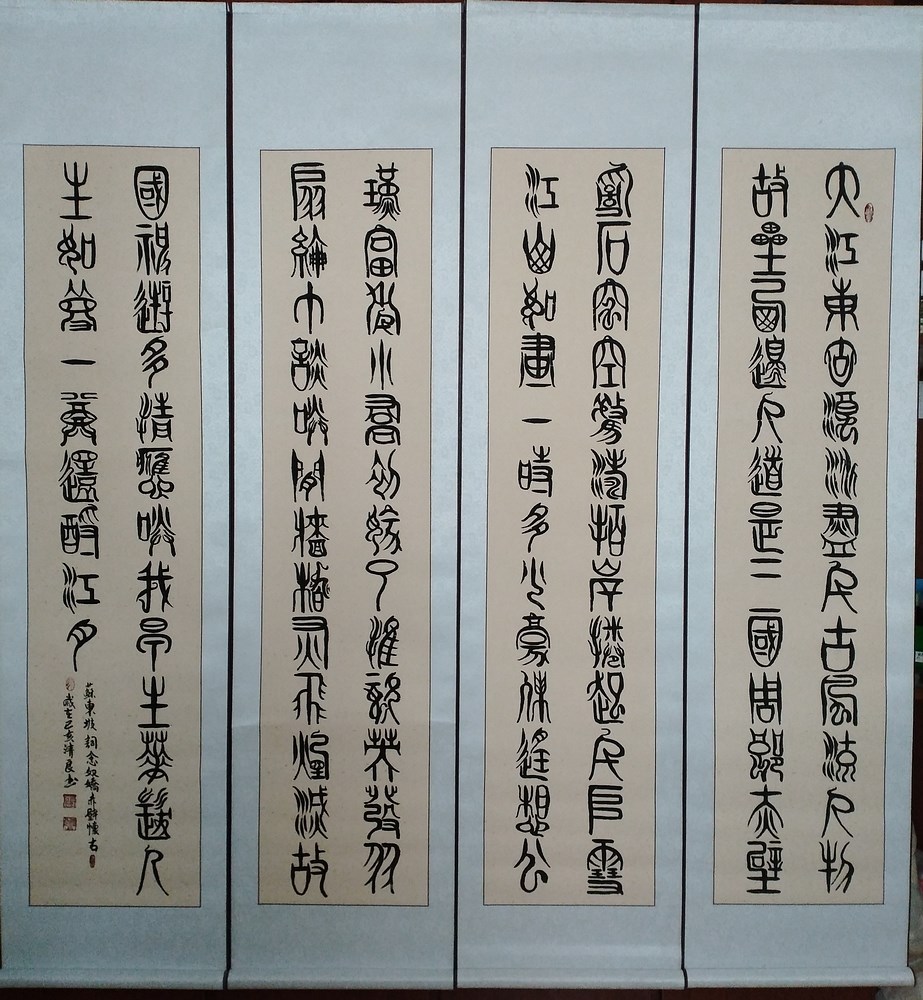 大江東去浪淘盡千古風流人物
故壘西邊人道是三國周郎赤壁
亂石穿空驚濤拍岸捲起千堆雪
江山如畫一時多少豪傑遙想公
瑾當年小喬初嫁了雄姿英發羽
扇綸巾談笑間檣櫓灰飛煙滅故
國神遊多情應笑我早生華髮人
生如夢一尊還酹江月
蘇東坡詞念奴嬌赤壁懷古
歲在己亥清良书